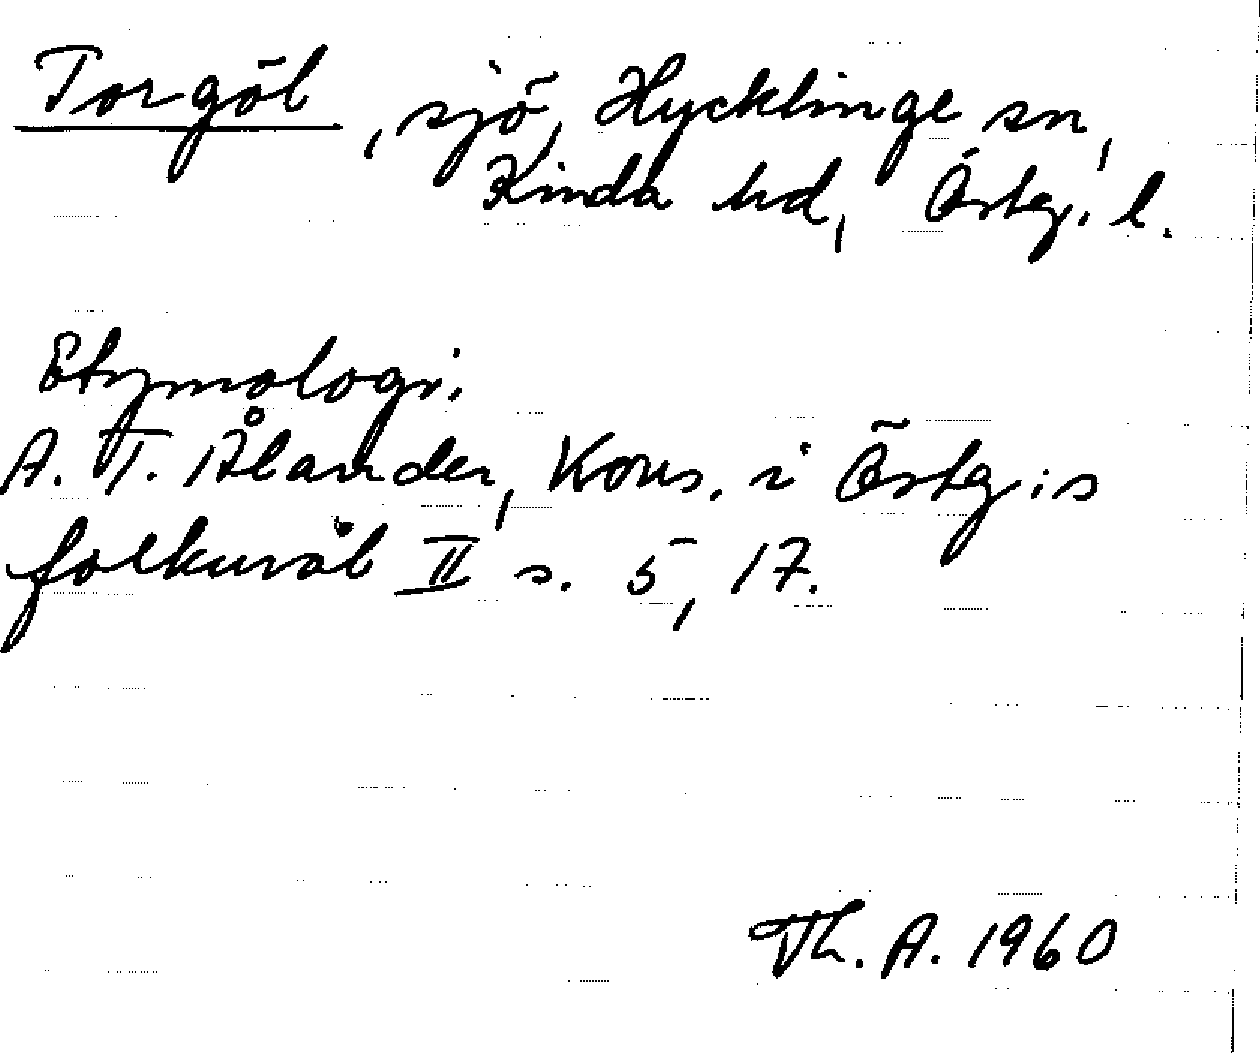 Torgöl, sjö, Hycklinge sn,
Kinda hd, Östg. l.
Etymologi.
A. T. Ålander, Kons. i Östg:s
folkmål II s. 5, 17.
Th. A. 1960